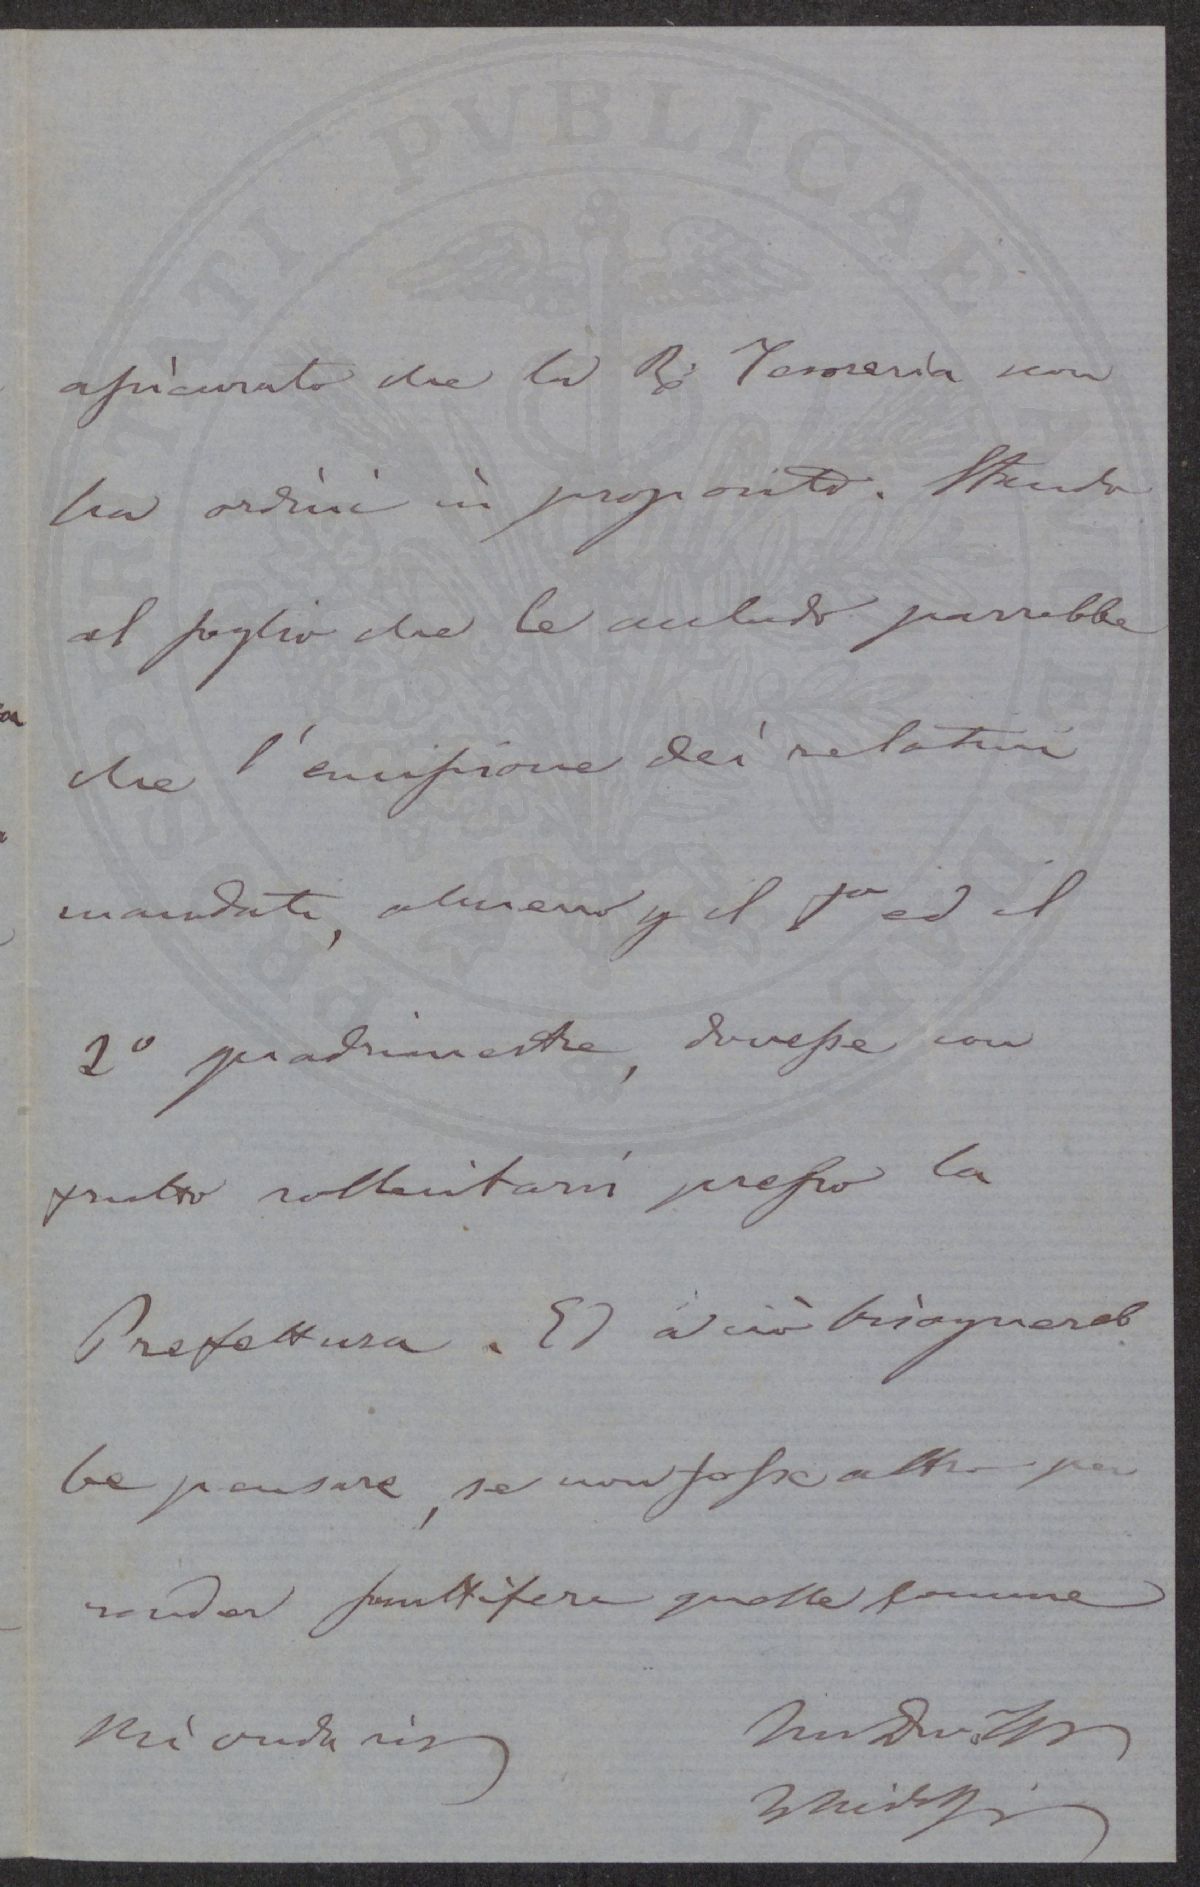 PROSPERITATI PVBLICAE AVGENDAE
assicurato che la R. Tesoreria non
ha ordini in proposito. Stando
al foglio che le accludo parrebbe
che l'emissione dei relativi
mandati, almeno p il 1o ed il
2o quadrimestre, dovesse con
frutto sollecitarsi presso la
Prefettura. Ed a ciò bisognereb
be pensare, se non fosse altro per
render fruttifere quelle somme
Mi creda